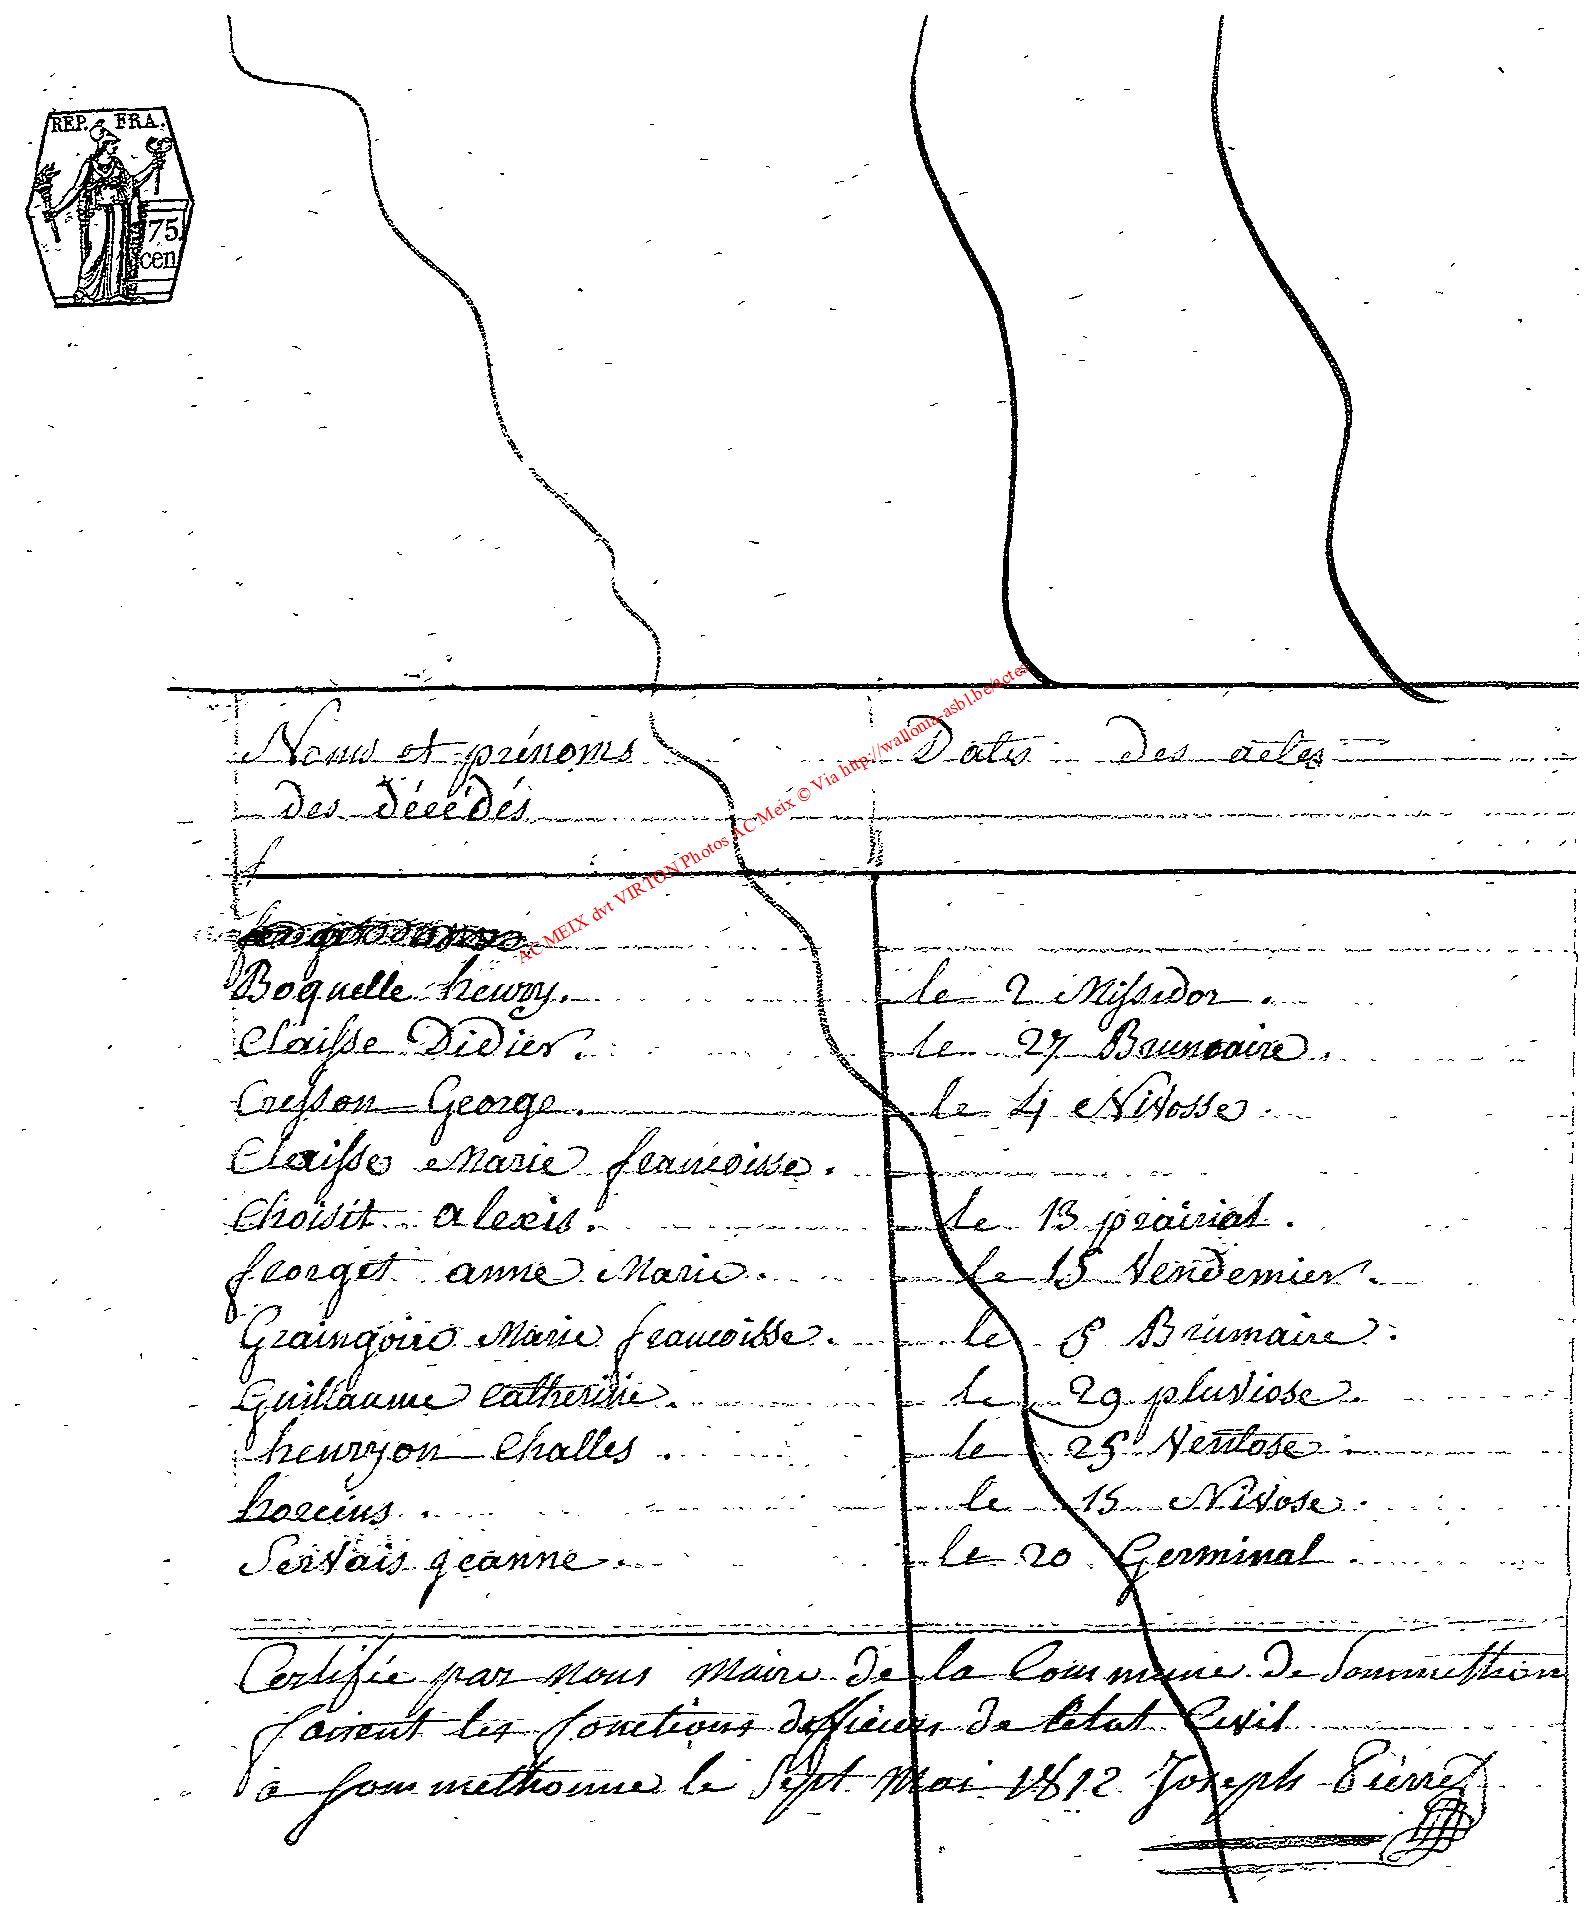 REP. FRA.
75.
cen
Noms et prénoms Dates des actes
des décédés
AC MEIX dvt VIRTON Photos AC Meix © Via http://wallonia-asbl.be/actes
Boquelle henry. le 2 Missidor.
Claisse Didier. le 27 Brumaire.
Cresson George. le 4 Nivosse.
Claisse Marie francoisse.
Choisit alexis. le 13 prairial.
forget anne Marie. le 15 Vendemier.
Graingoire Marie francoisse. le 5 Brumaire.
Guillaume Catherine. le 29 pluviose.
henryon Challes. le 25 Ventose.
horcius. le 15 Nivose.
Servais geanne. le 20 Germinal
Certifiée par nous Maire de la Commune de Sommethon
faisent les fonctions dofficiers de letat Civil
a Sommethonne le Sept Mai 1812 Joseph Pierret